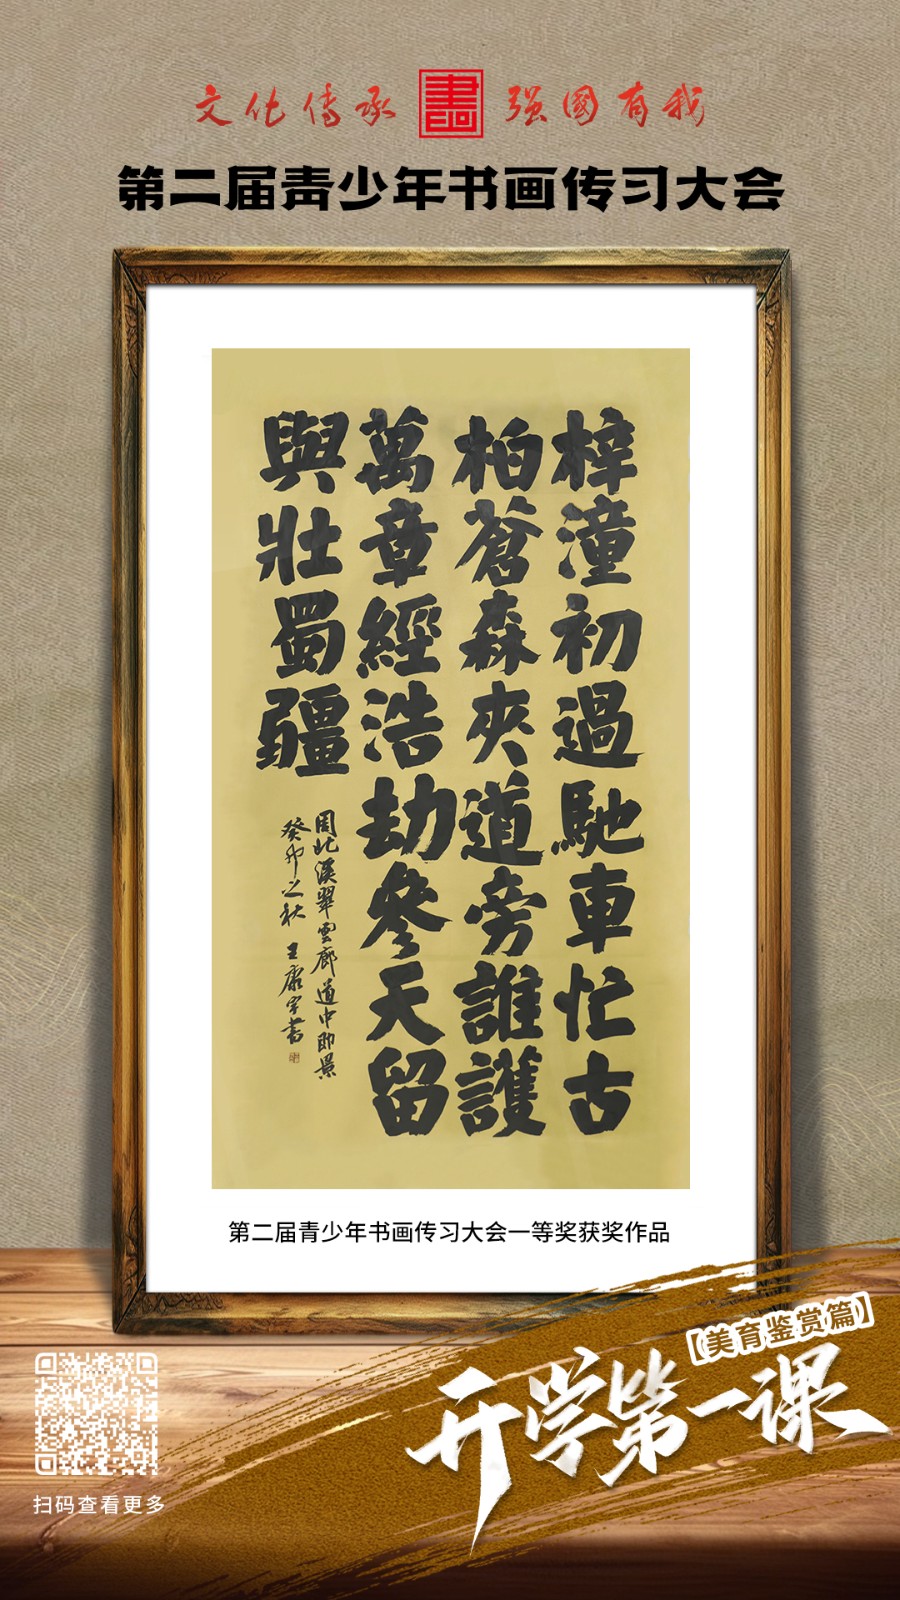 文化传承 書 强國有我
第二届青少年书画传习大会
梓潼初過馳車忙古
柏蒼森夾道旁誰護
萬章經浩劫參天留
與壯蜀疆
周北溪翠雲廊道中即景
癸卯之秋 王康宇書
第二届青少年书画传习大会一等奖获奖作品
【美育鉴赏篇】
开学第一课
扫码查看更多